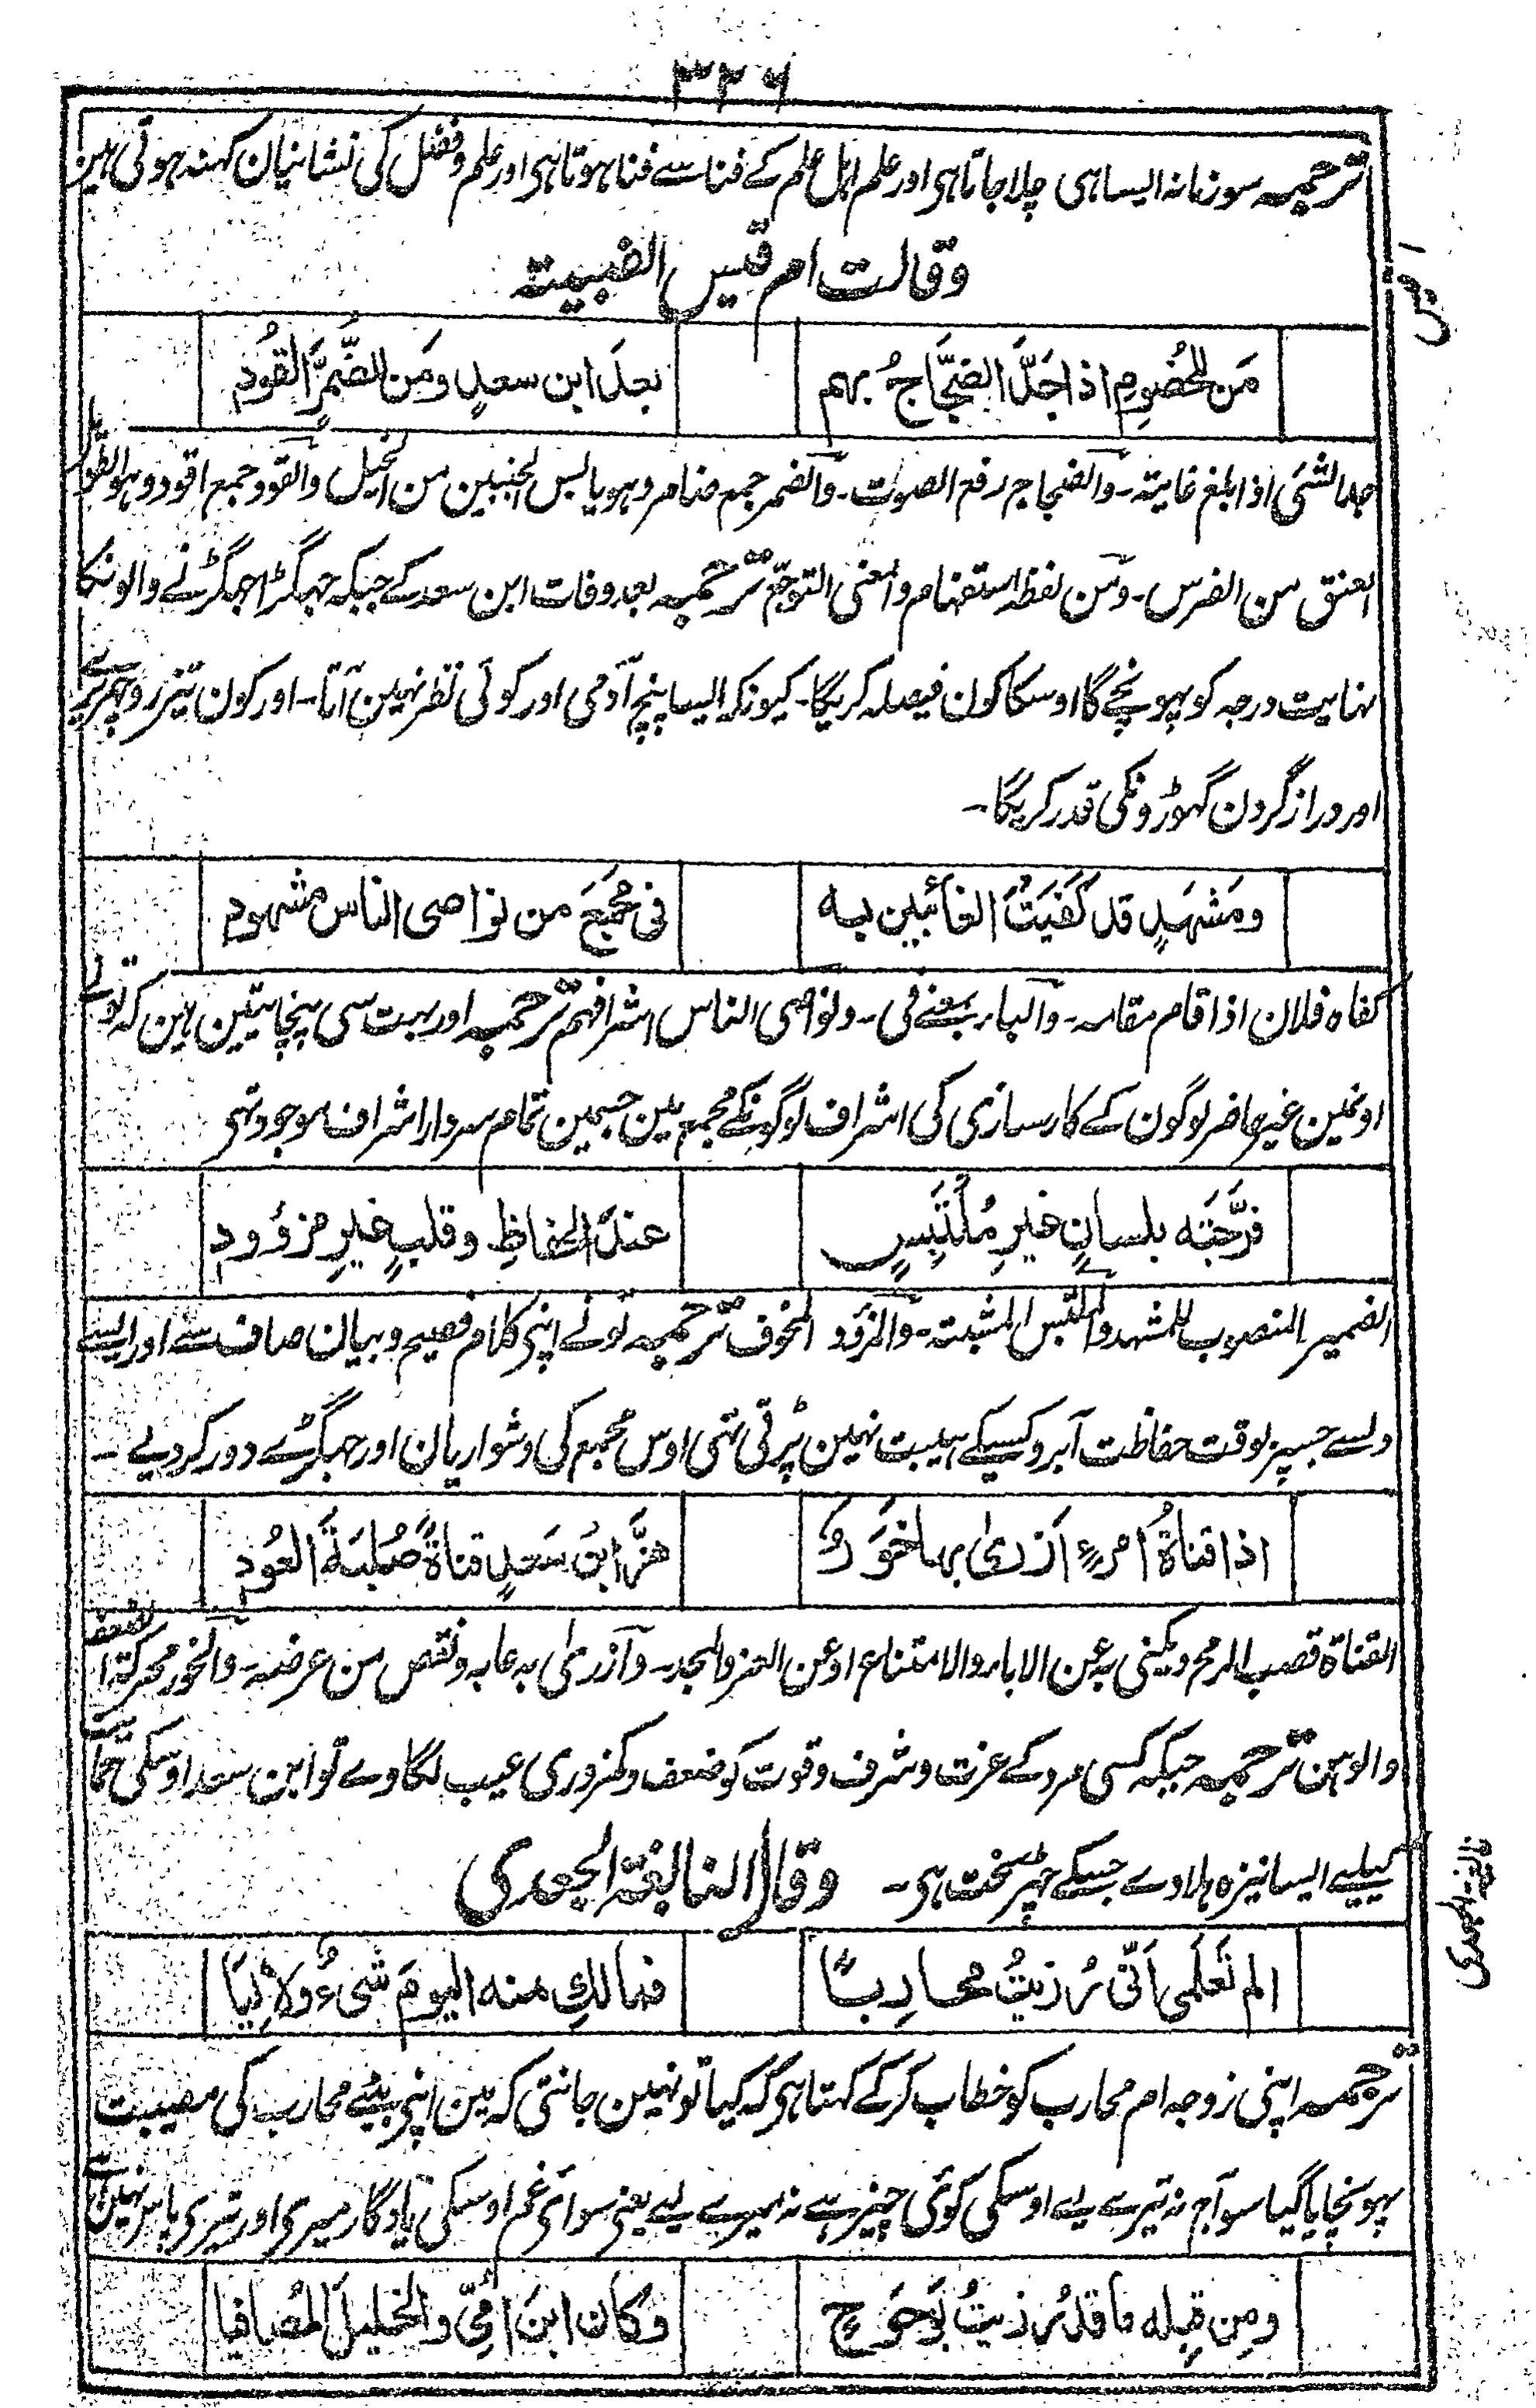 ۳۳۶
ترجمہ سو زمانہ ایسا ہی چلا جاتا ہی اور علم اہل علم کے فنا سے فنا ہوتا ہی اور علم و فضل کی نشانیان کہنہ ہوتی ہین
وقالت ام قیس الضبیتہ
مَن للخُصُومِ اذا جَدَّ الضِّجَاجُ بہم بعدَ ابن سعدٍ ومَن للضُّمَّرِ القُودِ
جد الشئ اذا بلغ غایتہ۔ والضجاج رفع الصوت۔ والضمر جمع ضامر وہو یابس الجنبین من الخیل والقود جمع اقود وہو الطویل
العنق من الفرس۔ ومن لفظہ استفہام والمعنی التوجع ترجمہ بعد وفات ابن سعد کے جبکہ جہگڑا جہگڑنے والونکا
نہایت درجہ کو پہونچے گا اوسکا کون فیصلہ کریگا۔ کیونکہ ایسا پنچ آدمی اور کوئی نظر نہین آتا۔ اور کون تیز رو چہریرے
اور دراز گردن گہوڑونکی قدر کریگا۔
ومَشہَدٍ قد کَفَیتَ الغائبین بہ فی مَجمَعٍ من نواصی الناس مشہودِ
کفاہ فلان اذا قام مقامہ۔ والباء بمعنے فی۔ ونواصی الناس اشرافہم ترجمہ اور بہت سی پنچایتین ہین کہ تونے
اونمین غیر حاضر لوگون کے کارسازی کی اشراف لوگونکے مجمع مین جسمین تمام سردار اشراف موجود تہی
فَرَّجتَہ بلسانٍ غیرِ مُلتَبِسٍ عندَ الحِفاظِ وقلبٍ غیرِ مزؤودِ
الضمیر المنصوب للمشہد والملتبس المشتبہ۔ والمزؤد المخوف ترجمہ تونے اپنی کلام فصیح و بیان صاف سے اور ایسے
دلسے جسپر بوقت حفاظت آبرو کسیکے ہیبت نہین پڑتی تہی اوس مجمع کی دشواریان اور جہگڑے دور کردیے۔
اذا قناۃُ امرءٍ اَزریٰ بہا خَوَرٌ ھزَّ ابنُ سَعدٍ قناۃً صُلبَۃَ العُودِ
القناۃ قصب الرمح ویکنی بہ عن الاباء والامتناع او عن العز والمجد۔ وآزریٰ بہ عابہ ونقص من عرضہ۔ والخور محرکۃ الضعف
والوہن ترجمہ جبکہ کسی مرد کے عزت و شرف و قوت کو ضعف و کمزوری عیب لگاوے تو ابن سعد اوسکی حمایت
کیلیے ایسا نیزہ ہلاوے جسکے چہڑ سخت ہی۔ وقال النابغۃ الجعدی
الم تَعلَمی اَنّی رُزِیتُ محارِبًا فمالکِ منہ الیومَ شیءٌ ولا لِیَا
ترجمہ اپنی زوجہ ام محارب کو خطاب کرکے کہتا ہی کہ کیا تو نہین جانتی کہ مین اپنی بیٹے محارب کی مصیبت
پہونچایا گیا سو آج نہ تیرے لیے اوسکی کوئی چیز ہے نہ میرے لیے یعنی سوای غم اوسکی یادگار میری اور تیری پاس نہین ہے
ومِن قبلِہ ما قد رُزیتُ بوَحوَحٍ وکان ابنَ اُمّی والخلیلَ المُصافیا
النابغۃ الجعدی